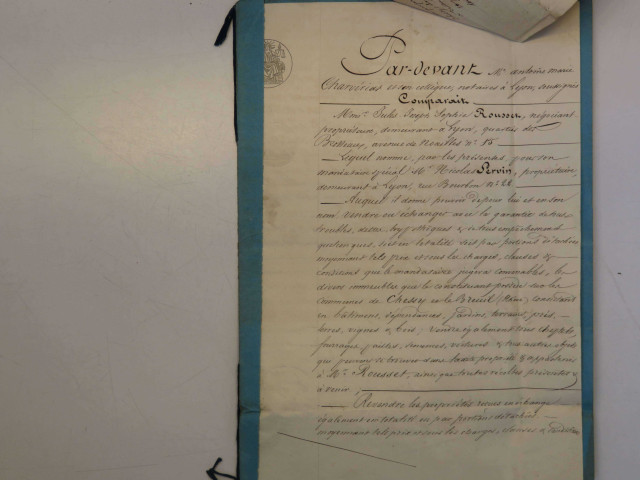 Par-devant Me antoine marie
et son collègue, notaires à Lyon soussignés
Comparait
Monsr. Jules Joseph Sophie Rousset, négociant
propriétaire, demeurant à Lyon, quartier des
Brotteaux, avenue de Noailles no 15
Lequel nomme, par les présentes, pour son
mandataire spécial Mr Nicolas Pervin, propriétaire,
demeurant à Lyon, rue Bourbon no 28
Auquel il donne pouvoir de pour lui et en son
nom vendre ou échanger avec la garantie de tous
troubles, dettes, hypothèques & autres empêchements
quelconques, soit en totalité soit par parties détachées
moyennant tels prix et sous les charges, clauses &
conditions que le mandataire jugera convenables, les
divers immeubles que le constituant possède sur les
Communes de Chessy et le Breuil (Rhône) consistant
en bâtiments, dépendances, jardins, terreaux, prés,
terres, vignes & bois; vendre également tous cheptels,
fourrages, pailles, semences, voitures & tous autres objets
qui peuvent se trouver dans la propriété & appartenir
à Mr Rousset, ainsi que toutes récoltes présentes &
à venir
Revendre les propriétés reçues en échange
également en totalité ou par parties détachées
moyennant tels prix et sous les charges, clauses & conditions